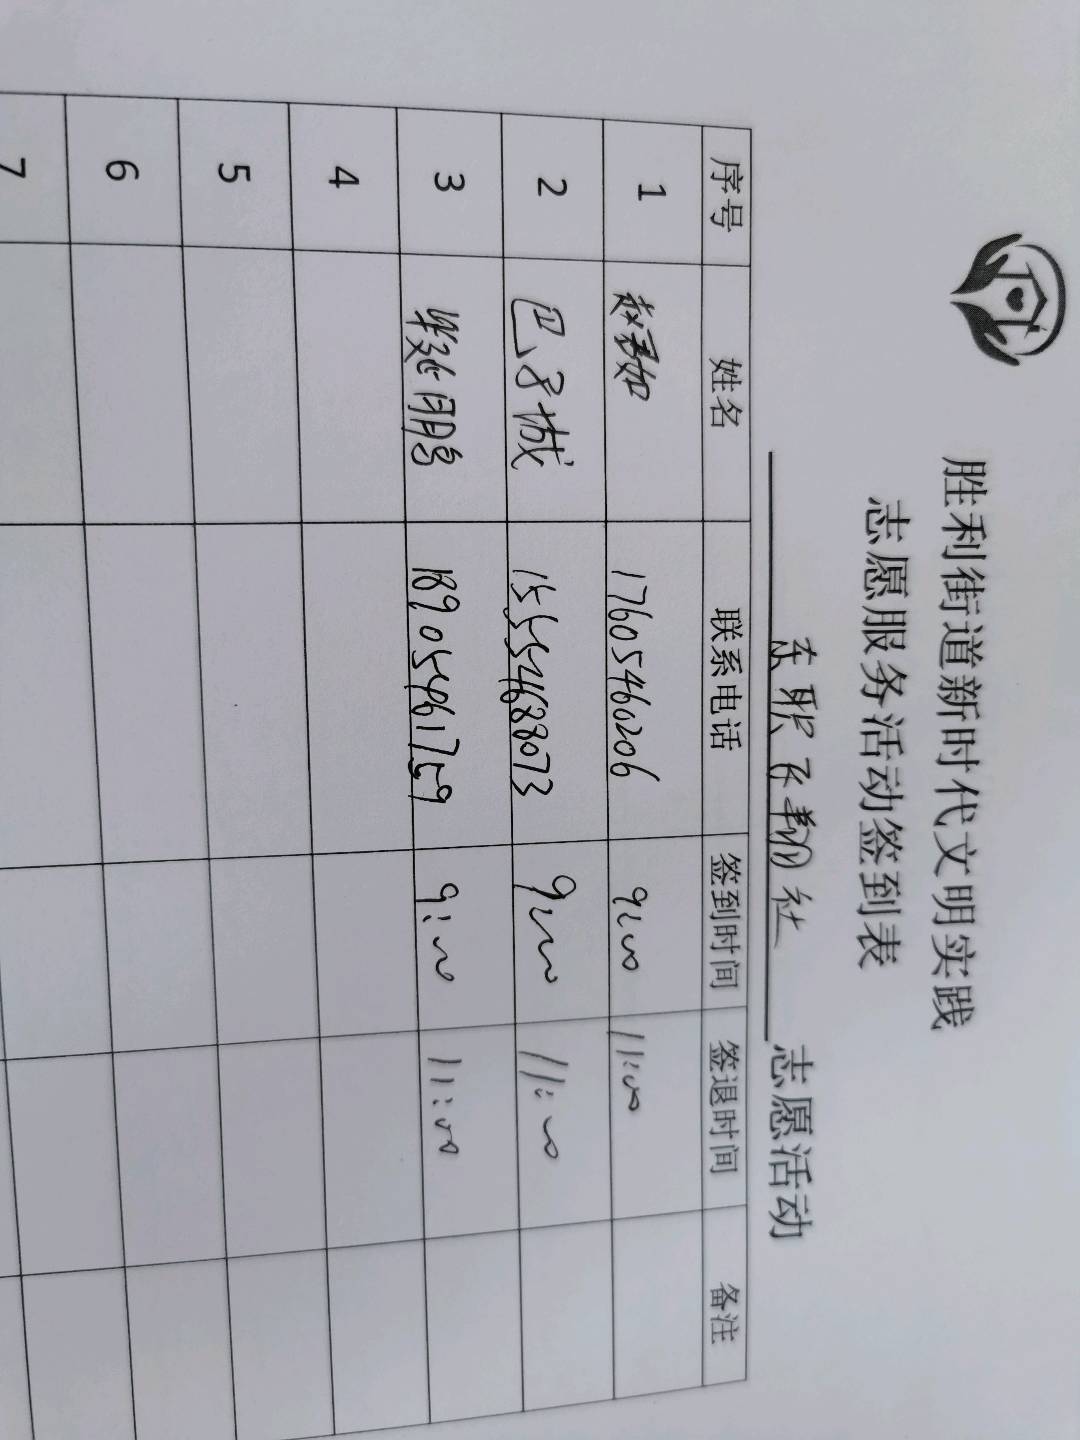 胜利街道新时代文明实践
志愿服务活动签到表
东职飞翔社 志愿活动
序号 姓名 联系电话 签到时间 签退时间 备注
1 赵君如 17605460206 9:00 11:00
2 巴子城 15554688073 9:00 11:00
3 延鹏 18905461759 9:00 11:00
4
5
6
7